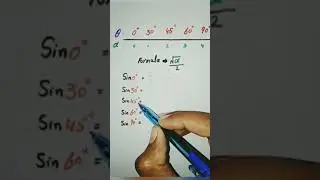 θ 0° 30° 45° 60° 90°
α 0 1 2 3 4
Formula ⇒ √α/2
Sin 0° =
Sin 30° =
Sin 45° =
Sin 60° =
Sin 90° =
Sin 30°
Sin 45°
Sin 60°